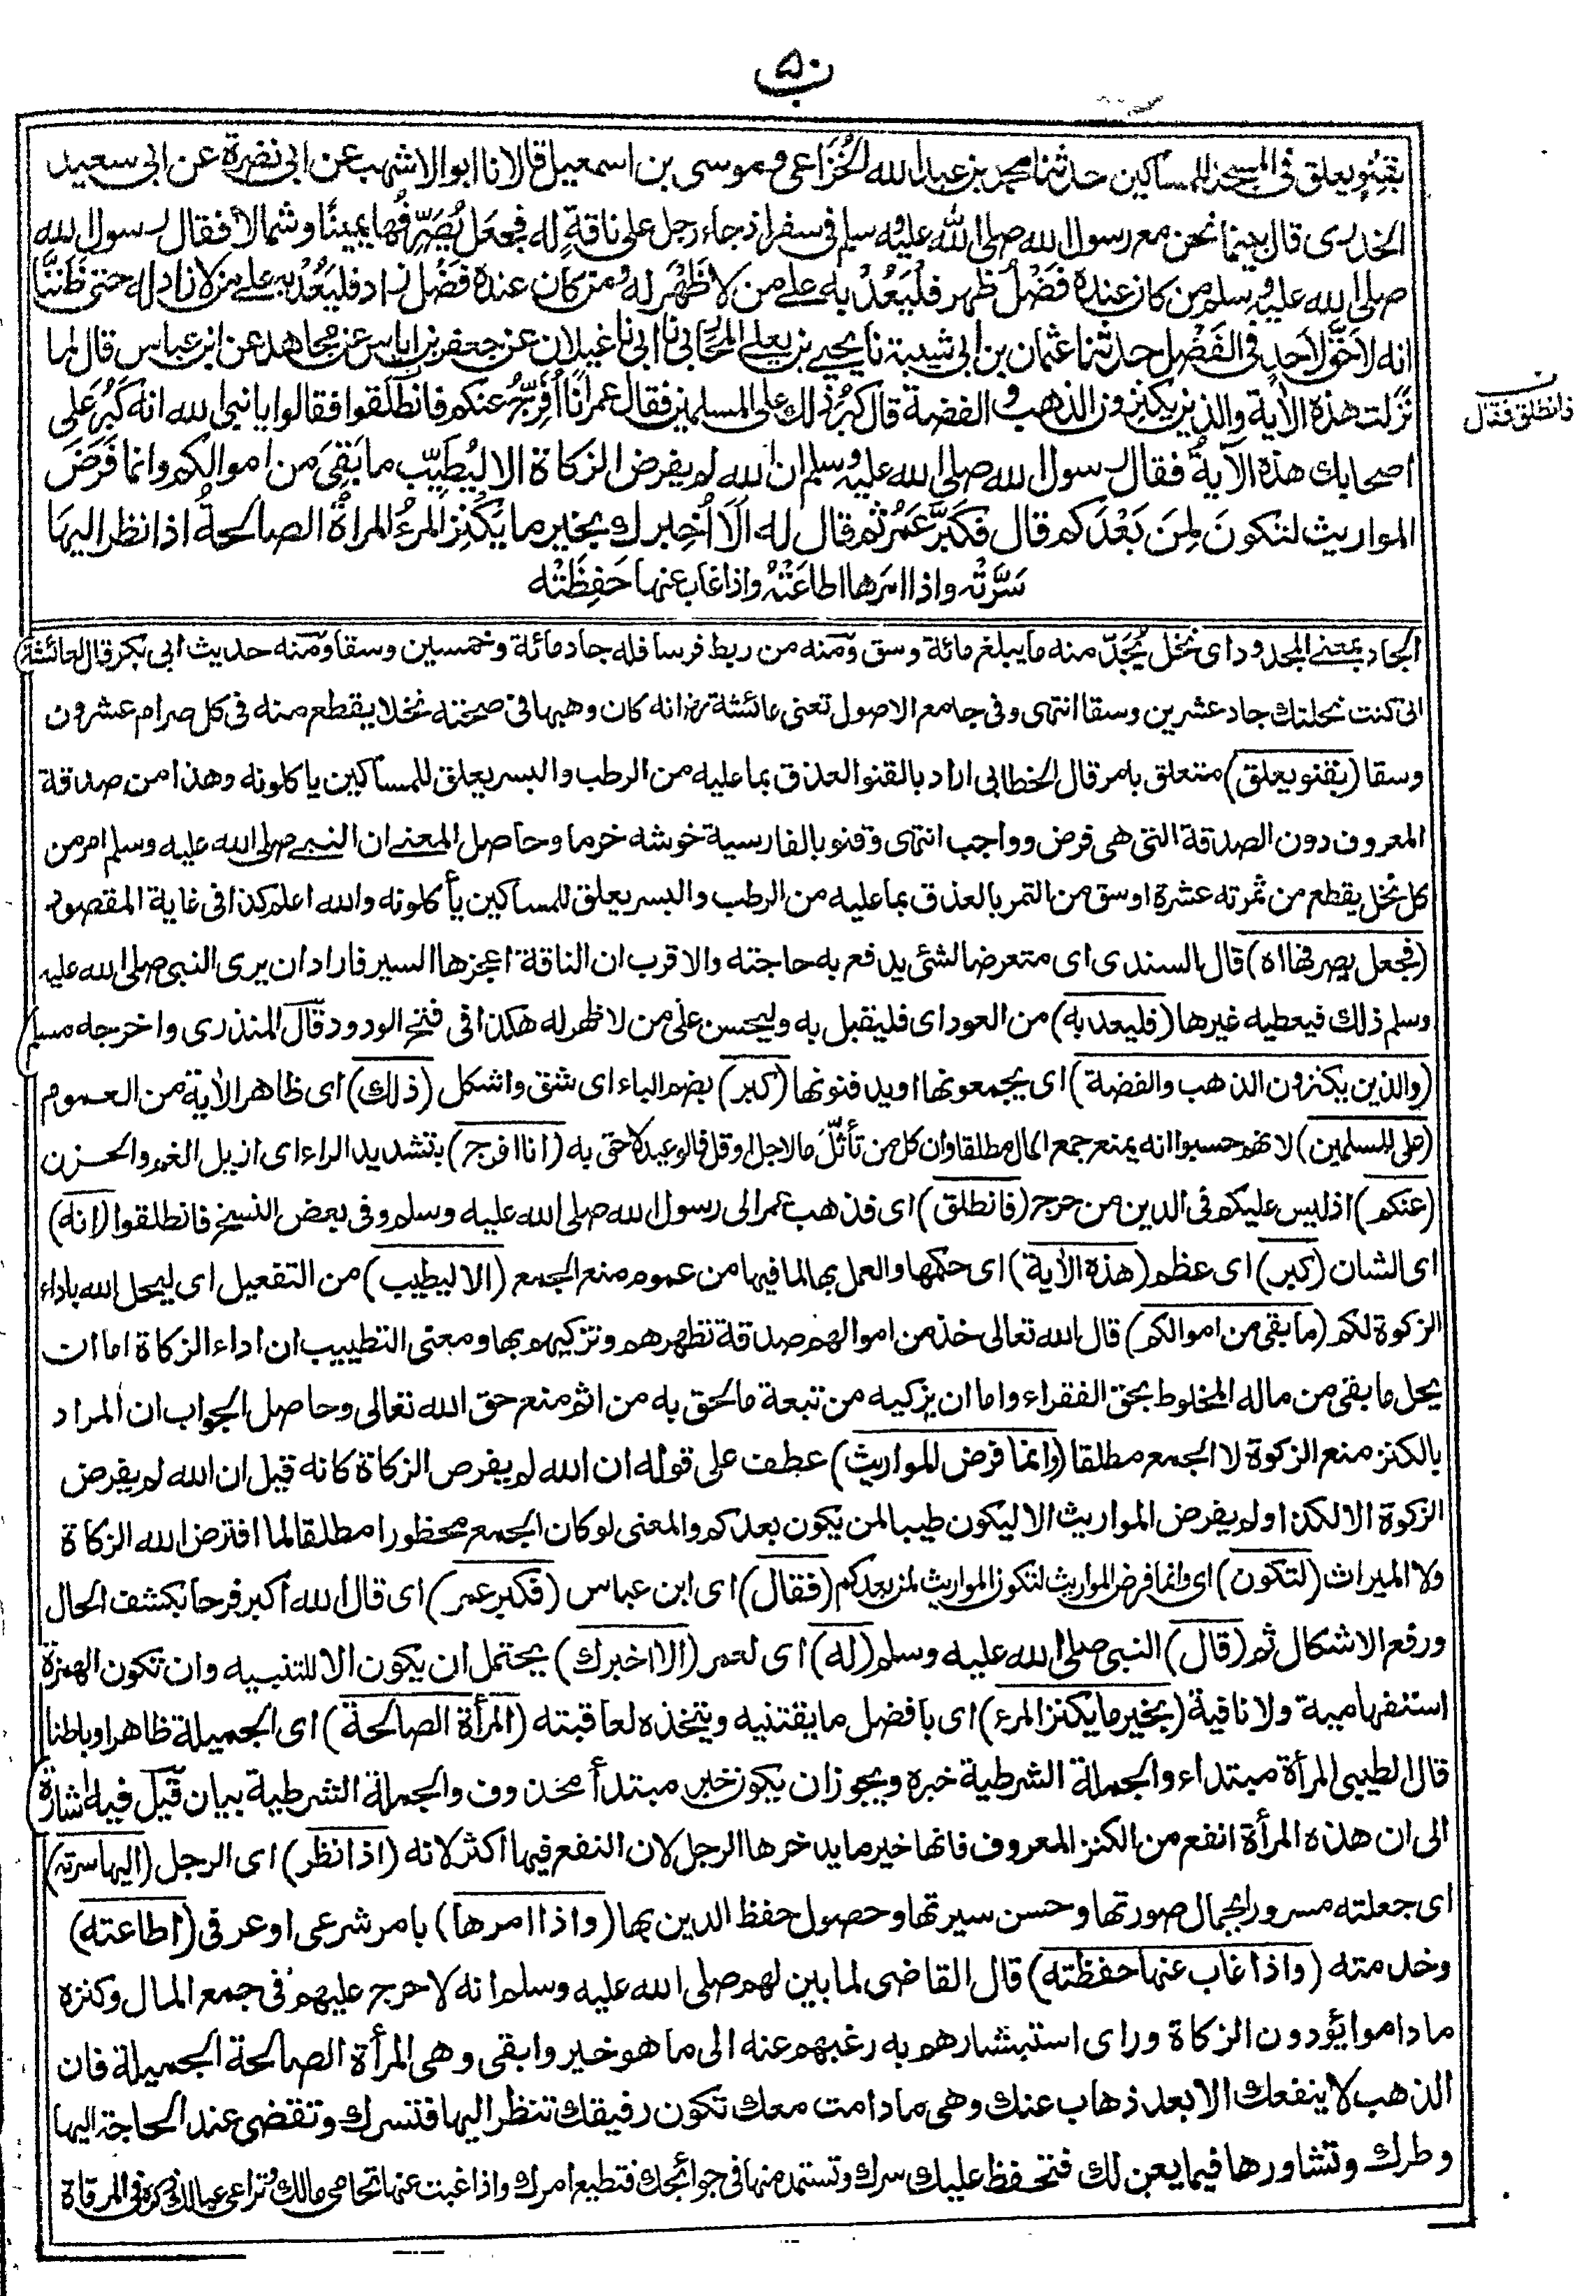 ٥٠
بقنو يعلق فى المسجد للمساكين حدثنا محمد بن عبد الله الخُزَاعى وموسى بن اسمعيل قالا نا ابو الاشهب عن ابى نضرة عن ابى سعيد
الخدرى قال بينما نحن مع رسول الله صلى الله عليه وسلم فى سفر اذ جاء رجل على ناقةٍ له فجعل يُصَرِّفُها يمينًا وشمالا فقال رسول الله
صلى الله عليه وسلم من كان عنده فَضْلُ ظهر فلْيَعُدْ به على من لا ظَهْرَ له ومن كان عنده فَضْل زاد فليَعُدْ به على من لا زاد له حتى ظَنَنَّا
انه لا حَقَّ لاحدٍ فى الفَضْل حدثنا عثمان بن ابى شيبة نا يحيى بن يعلى المُحَاربى نا ابى نا غيلان عن جعفر بن اياس عن مجاهد عن ابن عباس قال لما
نَزَلت هذه الاٰية والذين يكنزون الذهب والفضة قال كَبُرَ ذلك على المسلمين فقال عمر انا اُفَرِّجُ عنكم فانطَلَقوا فقالوا يا نبى الله انه كَبُرَ على
ڹ فانطلق فقال
اصحابك هذه الاٰية فقال رسول الله صلى الله عليه وسلم ان الله لم يفرض الزكاة الا ليُطَيِّب ما بَقِىَ من اموالكم وانما فَرَضَ
المواريث لتكونَ لِمَن بَعْدَكم قال فكَبَّرَ عُمَرُ ثم قال له اَلَا اُخبرك بخير ما يَكْنِز المرءُ المراةُ الصالحةُ اذا نظر اليها
سَرَّتْه واذا امرها اطاعَتْهُ واذا غاب عنها حَفِظَتْه
الجاد بمعنى المجدود اى نخل يُجَدّ منه ما يبلغ مائة وسق ومنه من ربط فرسا فله جاد مائة وخمسين وسقا ومنه حديث ابى بكر قال لعائشة
انى كنت نحلتك جاد عشرين وسقا انتهى وفى جامع الاصول تعنى عائشة رض انه كان وهبها فى صحته نخلا يقطع منه فى كل صرام عشرون
وسقا (بقنو يعلق) متعلق بامر قال الخطابى اراد بالقنو العذق بما عليه من الرطب والبسر يعلق للمساكين ياكلونه وهذا من صدقة
المعروف دون الصدقة التى هى فرض وواجب انتهى وقنو بالفارسية خوشه خرما وحاصل المعنى ان النبى صلى الله عليه وسلم امر من
كل نخل يقطع من ثمرته عشرة اوسق من التمر بالعذق بما عليه من الرطب والبسر يعلق للمساكين يأكلونه والله اعلم كذا فى غاية المقصود
(فجعل يصرفها اه) قال السندى اى متعرضا لشئ يدفع به حاجته والاقرب ان الناقة اعجزها السير فاراد ان يرى النبى صلى الله عليه
وسلم ذلك فيعطيه غيرها (فليعد به) من العود اى فليقبل به وليحسن على من لا ظهر له هكذا فى فتح الودود قال المنذرى واخرجه مسلم
(والذين يكنزون الذهب والفضة) اى يجمعونها او يدفنونها (كبر) بضم الباء اى شق واشكل (ذلك) اى ظاهر الاٰية من العموم
(على المسلمين) لانهم حسبوا انه يمنع جمع المال مطلقا وان كل من تأثّل مالا جل او قل فالوعيد لاحق به (انا افرج) بتشديد الراء اى ازيل الغم والحزن
(عنكم) اذ ليس عليكم فى الدين من حرج (فانطلق) اى فذهب عمر الى رسول الله صلى الله عليه وسلم وفى بعض النسخ فانطلقوا (انه)
اى الشان (كبر) اى عظم (هذه الاٰية) اى حكمها والعمل بها لما فيها من عموم منع الجمع (الا ليطيب) من التفعيل اى ليحل الله باداء
الزكوة لكم (ما بقى من اموالكم) قال الله تعالى خذ من اموالهم صدقة تطهرهم وتزكيهم بها ومعنى التطييب ان اداء الزكاة اما ان
يحل ما بقى من ماله المخلوط بحق الفقراء واما ان يزكيه من تبعة ما لحق به من اثم منع حق الله تعالى وحاصل الجواب ان المراد
بالكنز منع الزكوة لا الجمع مطلقا (وانما فرض المواريث) عطف على قوله ان الله لم يفرض الزكاة كانه قيل ان الله لم يفرض
الزكوة الا لكذا ولم يفرض المواريث الا ليكون طيبا لمن يكون بعدكم والمعنى لو كان الجمع محظورا مطلقا لما افترض الله الزكاة
ولا الميراث (لتكون) اى وانما فرض المواريث لتكون المواريث لمن بعدكم (فقال) اى ابن عباس (فكبر عمر) اى قال الله أكبر فرحا بكشف الحال
ورفع الاشكال ثم (قال) النبى صلى الله عليه وسلم (له) اى لعمر (الا اخبرك) يحتمل ان يكون الا للتنبيه وان تكون الهمزة
استفهامية ولا نافية (بخير ما يكنز المرء) اى بافضل ما يقتنيه ويتخذه لعاقبته (المرأة الصالحة) اى الجميلة ظاهرا وباطنا
قال الطيبى المرأة مبتداء والجملة الشرطية خبره ويجوز ان يكون خبر مبتدأ محذوف والجملة الشرطية بيان قيل فيه اشارة
الى ان هذه المرأة انفع من الكنز المعروف فانها خير ما يدخرها الرجل لان النفع فيها اكثر لانه (اذا نظر) اى الرجل (اليها سرته)
اى جعلته مسرورا لجمال صورتها وحسن سيرتها وحصول حفظ الدين بها (واذا امرها) بامر شرعى او عرفى (اطاعته)
وخدمته (واذا غاب عنها حفظته) قال القاضى لما بين لهم صلى الله عليه وسلم انه لا حرج عليهم فى جمع المال وكنزه
ما داموا يؤدون الزكاة وراى استبشارهم به رغبهم عنه الى ما هو خير وابقى وهى المرأة الصالحة الجميلة فان
الذهب لا ينفعك الا بعد ذهاب عنك وهى ما دامت معك تكون رفيقك تنظر اليها فتسرك وتقضى عند الحاجة اليها
وطرك وتشاورها فيما يعن لك فتحفظ عليك سرك وتستمد منها فى حوائجك فتطيع امرك واذا غبت عنها تحامى مالك وتراعى عيالك ذكره فى المرقاة